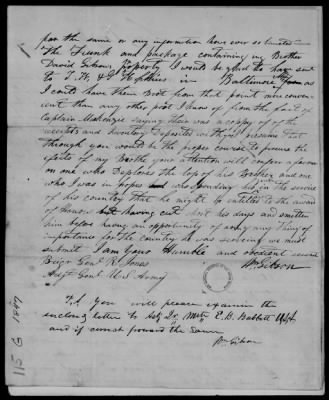 for the same or any information how ever so
The Trunk and package containing my Brother
David Gibsons property I would be glad to have sent
to T. W. & G Hopkins in Baltimore as
I could have them Sent from that point more conven-
cent than any other point I know of from the fact of
Captain Mackenzie saying there was a copy of the
receipts and Inventory Deposited with you I presume that
through you would be the proper course to procure the
efects of my Brother your attention will confer a favour
on one who Deplores the loss of his Brother and one
who I was in hopes was spending his in the service
of his country that he might be entitled to the award
of honour but having cut short his days and
him before having an opportunity of doing any thing of
importance for the country he was serving we must
submit I am your Humble and obedient servt
Brigr Genl R Jones Wm Gibson
Adjt Genl U.S. Army
P.S. you will please examine the
enclosed letter to E. B. Babbitt U.S.A.
and if correct forward the same
Wm Gibson
115 G 1847